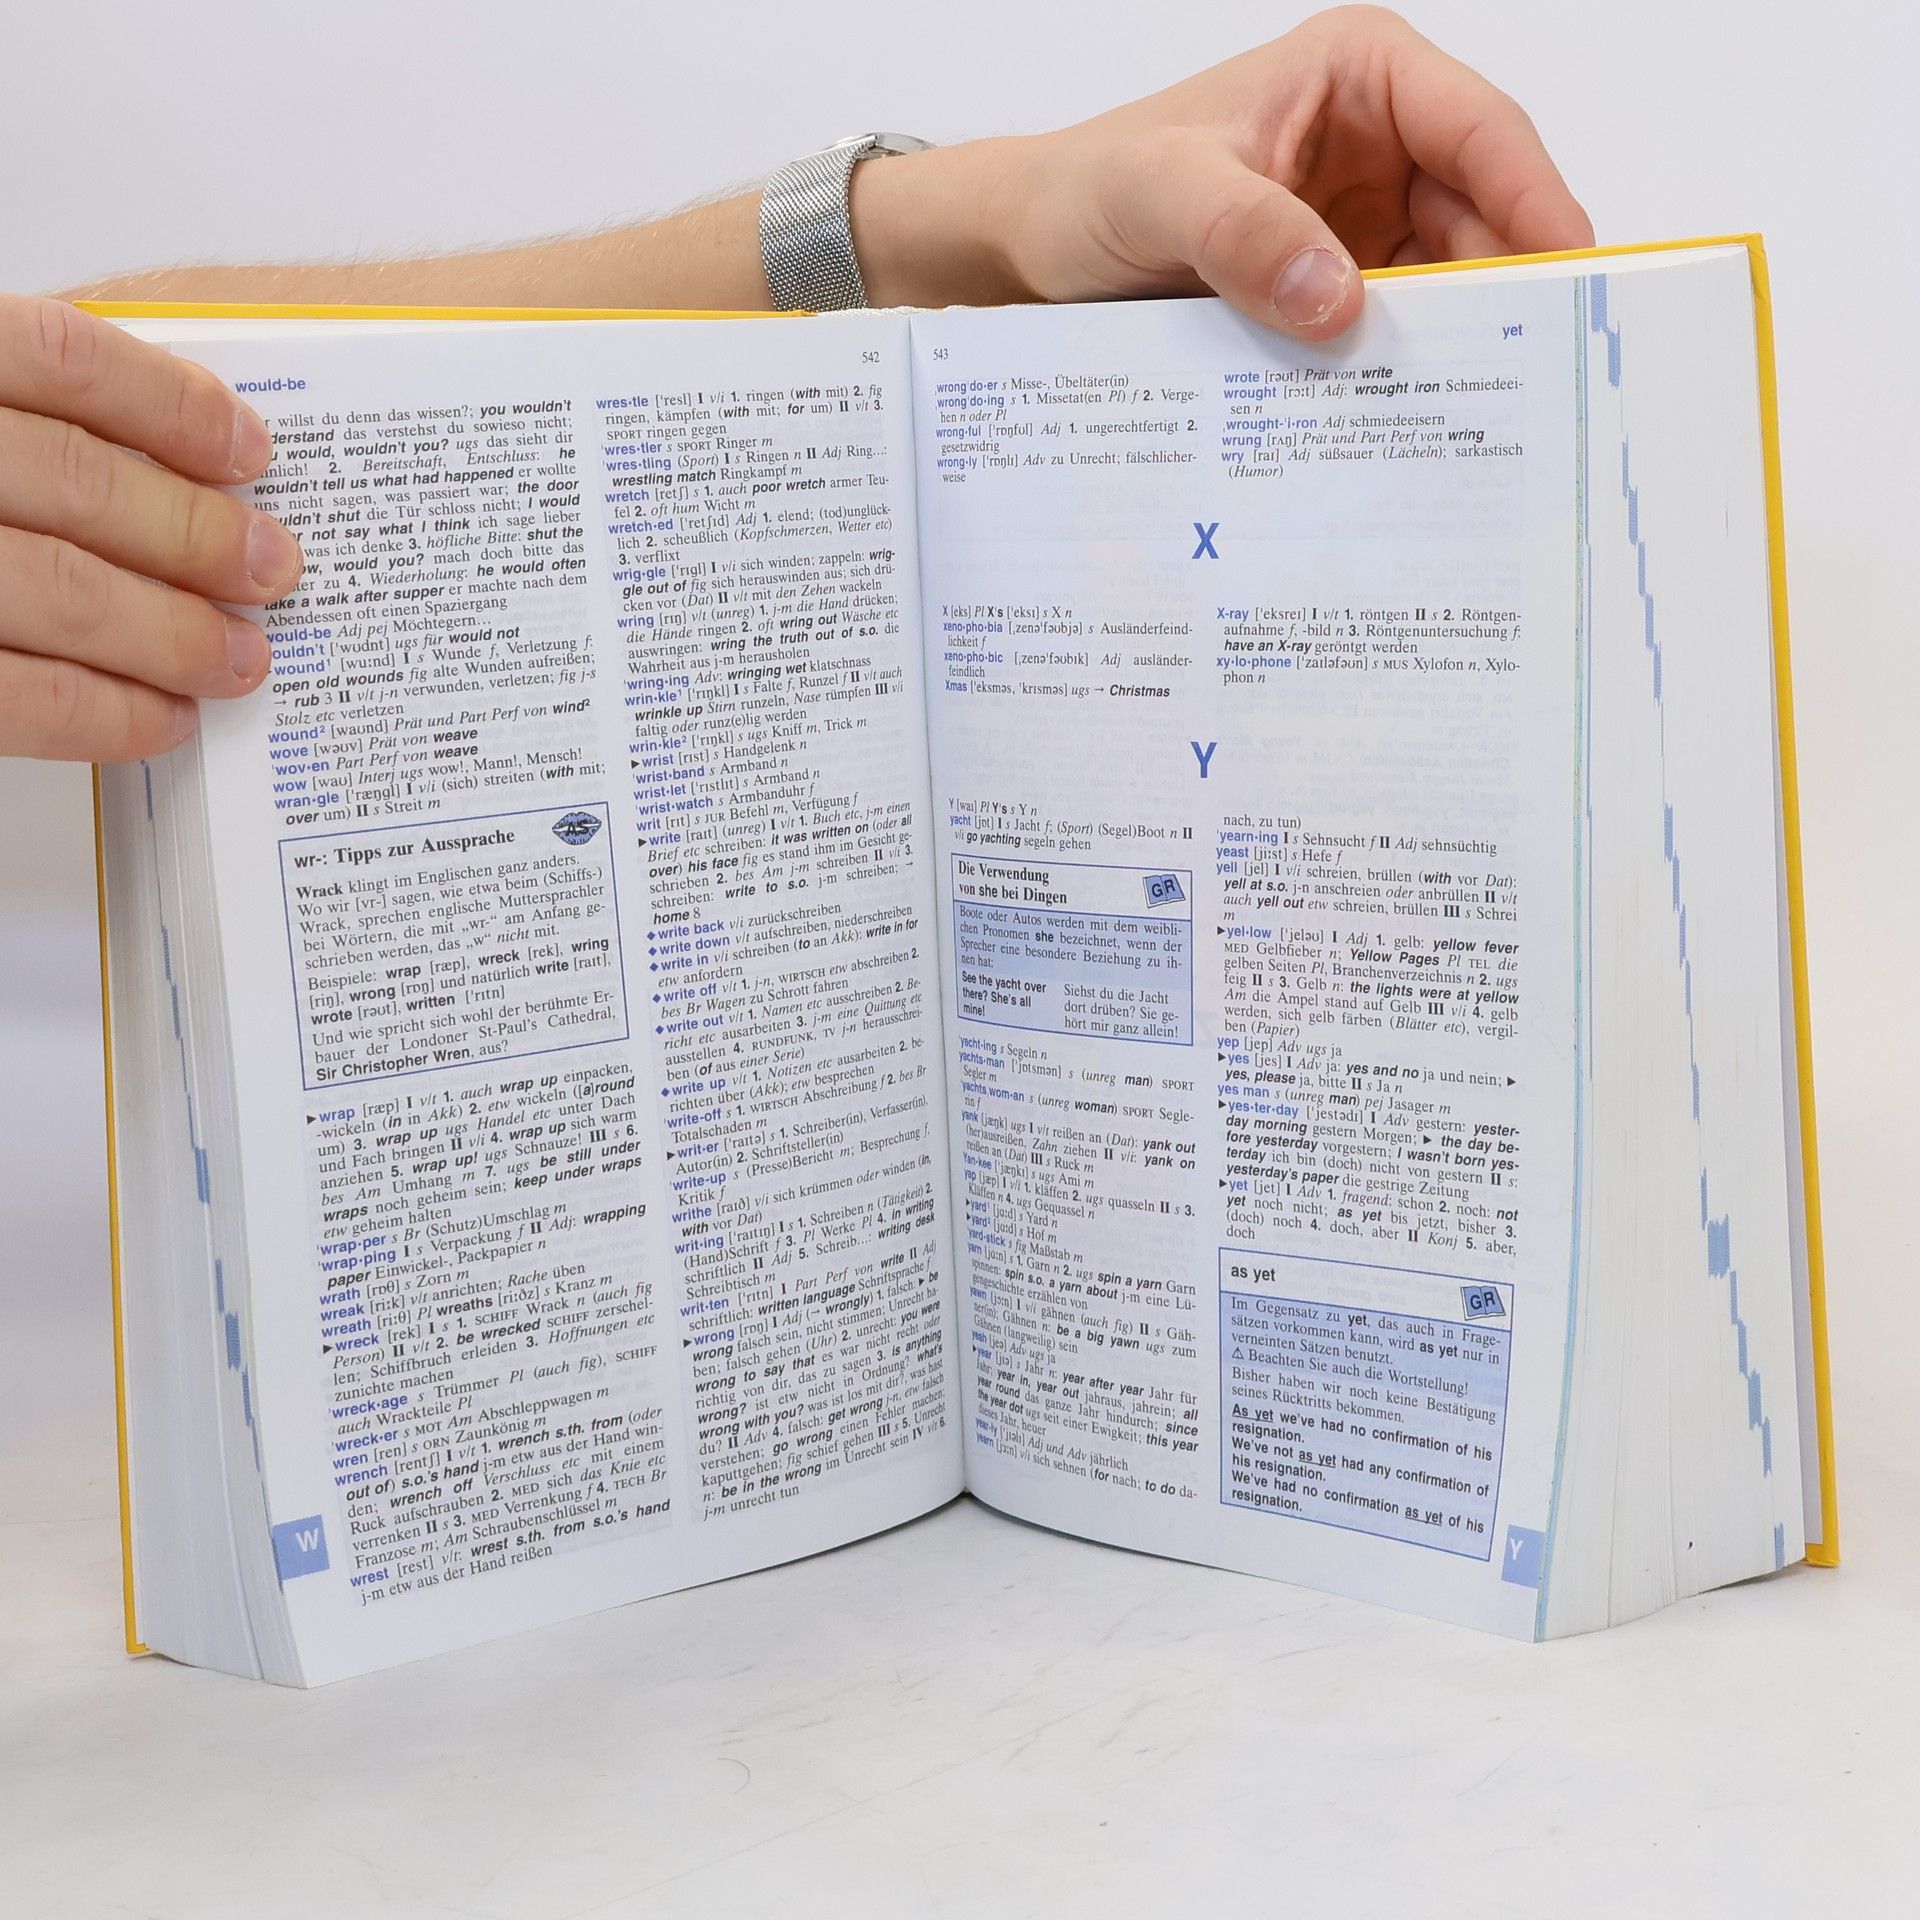 would-be
542
willst du denn das wissen?; you wouldn't
das verstehst du sowieso nicht;
would, wouldn't you? ugs das sieht dir
2. Bereitschaft, Entschluss: he
wouldn't tell us what had happened er wollte
uns nicht sagen, was passiert war; the door
shut die Tür schloss nicht; I would
not say what I think ich sage lieber
was ich denke 3. höfliche Bitte: shut the
would you? mach doch bitte das
zu 4. Wiederholung: he would often
take a walk after supper er machte nach dem
Abendessen oft einen Spaziergang
would-be Adj pej Möchtegern…
['wʊdnt] ugs für would not
wound¹ [wu:nd] I s Wunde f, Verletzung f:
open old wounds fig alte Wunden aufreißen;
→ rub 3 II v/t j-n verwunden, verletzen; fig j-s
Stolz etc verletzen
wound² [waʊnd] Prät und Part Perf von wind²
wove [wəʊv] Prät von weave
'wov·en Part Perf von weave
wow [waʊ] Interj ugs wow!, Mann!, Mensch!
wran·gle ['ræŋgl] I v/i (sich) streiten (with mit;
over um) II s Streit m
wr-: Tipps zur Aussprache
AS
Wrack klingt im Englischen ganz anders.
Wo wir [vr-] sagen, wie etwa beim (Schiffs-)
Wrack, sprechen englische Muttersprachler
bei Wörtern, die mit „wr-“ am Anfang ge-
schrieben werden, das „w“ nicht mit.
Beispiele: wrap [ræp], wreck [rek], wring
[rɪŋ], wrong [rɒŋ] und natürlich write [raɪt],
wrote [rəʊt], written ['rɪtn]
Und wie spricht sich wohl der berühmte Er-
bauer der Londoner St-Paul's Cathedral,
Sir Christopher Wren, aus?
▶wrap [ræp] I v/t 1. auch wrap up einpacken,
-wickeln (in in Akk) 2. etw wickeln ([a]round
um) 3. wrap up ugs Handel etc unter Dach
und Fach bringen II v/i 4. wrap up sich warm
anziehen 5. wrap up! ugs Schnauze! III s 6.
bes Am Umhang m 7. ugs be still under
wraps noch geheim sein; keep under wraps
etw geheim halten
'wrap·per s Br (Schutz)Umschlag m
'wrap·ping I s Verpackung f II Adj: wrapping
paper Einwickel-, Packpapier n
wrath [rɒθ] s Zorn m
wreak [ri:k] v/t anrichten; Rache üben
wreath [ri:θ] Pl wreaths [ri:ðz] s Kranz m
▶wreck [rek] I s 1. SCHIFF Wrack n (auch fig
Person) II v/t 2. be wrecked SCHIFF zerschel-
len; Schiffbruch erleiden 3. Hoffnungen etc
zunichte machen
'wreck·age s Trümmer Pl (auch fig), SCHIFF
auch Wrackteile Pl
'wreck·er s MOT Am Abschleppwagen m
wren [ren] s ORN Zaunkönig m
wrench [rentʃ] I v/t 1. wrench s.th. from (oder
out of) s.o.'s hand j-m etw aus der Hand win-
den; wrench off Verschluss etc mit einem
Ruck aufschrauben 2. MED sich das Knie etc
verrenken II s 3. MED Verrenkung f 4. TECH Br
Franzose m; Am Schraubenschlüssel m
wrest [rest] v/t: wrest s.th. from s.o.'s hand
j-m etw aus der Hand reißen
W
wres·tle ['resl] I v/i 1. ringen (with mit) 2. fig
ringen, kämpfen (with mit; for um) II v/t 3.
SPORT ringen gegen
'wres·tler s SPORT Ringer m
'wres·tling (Sport) I s Ringen n II Adj Ring…:
wrestling match Ringkampf m
wretch [retʃ] s 1. auch poor wretch armer Teu-
fel 2. oft hum Wicht m
wretch·ed ['retʃɪd] Adj 1. elend; (tod)unglück-
lich 2. scheußlich (Kopfschmerzen, Wetter etc)
3. verflixt
wrig·gle ['rɪgl] I v/i sich winden; zappeln: wrig-
gle out of fig sich herauswinden aus; sich drü-
cken vor (Dat) II v/t mit den Zehen wackeln
wring [rɪŋ] v/t (unreg) 1. j-m die Hand drücken;
die Hände ringen 2. oft wring out Wäsche etc
auswringen: wring the truth out of s.o. die
Wahrheit aus j-m herausholen
'wring·ing Adv: wringing wet klatschnass
wrin·kle¹ ['rɪŋkl] I s Falte f, Runzel f II v/t auch
wrinkle up Stirn runzeln, Nase rümpfen III v/i
faltig oder runz(e)lig werden
wrin·kle² ['rɪŋkl] s ugs Kniff m, Trick m
▶wrist [rɪst] s Handgelenk n
'wrist·band s Armband n
wrist·let ['rɪstlɪt] s Armband n
'wrist·watch s Armbanduhr f
writ [rɪt] s JUR Befehl m, Verfügung f
▶write [raɪt] (unreg) I v/t 1. Buch etc, j-m einen
Brief etc schreiben: it was written on (oder all
over) his face fig es stand ihm im Gesicht ge-
schrieben 2. bes Am j-m schreiben II v/i 3.
schreiben: write to s.o. j-m schreiben; →
home 8
◆write back v/i zurückschreiben
◆write down v/t aufschreiben, niederschreiben
◆write in v/i schreiben (to an Akk): write in for
etw anfordern
◆write off v/t 1. j-n, WIRTSCH etw abschreiben 2.
bes Br Wagen zu Schrott fahren
◆write out v/t 1. Namen etc ausschreiben 2. Be-
richt etc ausarbeiten 3. j-m eine Quittung etc
ausstellen 4. RUNDFUNK, TV j-n herausschrei-
ben (of aus einer Serie)
◆write up v/t 1. Notizen etc ausarbeiten 2. be-
richten über (Akk); etw besprechen
'write-off s 1. WIRTSCH Abschreibung f 2. bes Br
Totalschaden m
▶writ·er ['raɪtə] s 1. Schreiber(in), Verfasser(in),
Autor(in) 2. Schriftsteller(in)
'write-up s (Presse)Bericht m; Besprechung f,
Kritik f
writhe [raɪð] v/i sich krümmen oder winden (in,
with vor Dat)
writ·ing ['raɪtɪŋ] I s 1. Schreiben n (Tätigkeit) 2.
(Hand)Schrift f 3. Pl Werke Pl 4. in writing
schriftlich II Adj 5. Schreib…: writing desk
Schreibtisch m
writ·ten ['rɪtn] I Part Perf von write II Adj
schriftlich: written language Schriftsprache f
▶wrong [rɒŋ] I Adj (→ wrongly) 1. falsch: ▶ be
wrong falsch sein, nicht stimmen; Unrecht ha-
ben; falsch gehen (Uhr) 2. unrecht: you were
wrong to say that es war nicht recht oder
richtig von dir, das zu sagen 3. is anything
wrong? ist etw nicht in Ordnung? what's
wrong with you? was ist los mit dir?, was hast
du? II Adv 4. falsch: get wrong j-n, etw falsch
verstehen; go wrong einen Fehler machen;
kaputtgehen; fig schief gehen III s 5. Unrecht
n: be in the wrong im Unrecht sein IV v/t 6.
j-m unrecht tun
543
yet
wrong'do·er s Misse-, Übeltäter(in)
'wrong'do·ing s 1. Missetat(en Pl) f 2. Verge-
hen n oder Pl
wrong·ful ['rɒŋful] Adj 1. ungerechtfertigt 2.
gesetzwidrig
wrong·ly ['rɒŋlɪ] Adv zu Unrecht; fälschlicher-
weise
wrote [rəʊt] Prät von write
wrought [rɔ:t] Adj: wrought iron Schmiedeei-
sen n
ˌwrought-'i·ron Adj schmiedeeisern
wrung [rʌŋ] Prät und Part Perf von wring
wry [raɪ] Adj süßsauer (Lächeln); sarkastisch
(Humor)
X
X [eks] Pl X's ['eksɪ] s X n
xeno·pho·bia [ˌzenə'fəʊbjə] s Ausländerfeind-
lichkeit f
xeno·pho·bic [ˌzenə'fəʊbɪk] Adj ausländer-
feindlich
Xmas ['eksməs, 'krɪsməs] ugs → Christmas
X-ray ['eksreɪ] I v/t 1. röntgen II s 2. Röntgen-
aufnahme f, -bild n 3. Röntgenuntersuchung f:
have an X-ray geröntgt werden
xy·lo·phone ['zaɪləfəʊn] s MUS Xylofon n, Xylo-
phon n
Y
Y [waɪ] Pl Y's s Y n
yacht [jɒt] I s Jacht f; (Sport) (Segel)Boot n II
v/i go yachting segeln gehen
Die Verwendung
von she bei Dingen
GR
Boote oder Autos werden mit dem weibli-
chen Pronomen she bezeichnet, wenn der
Sprecher eine besondere Beziehung zu ih-
nen hat:
See the yacht over there? She's all mine!
Siehst du die Jacht dort drüben? Sie ge-
hört mir ganz allein!
'yacht·ing s Segeln n
yachts·man ['jɒtsmən] s (unreg man) SPORT
Segler m
'yachts,wom·an s (unreg woman) SPORT Segle-
rin f
yank [jæŋk] ugs I v/t reißen an (Dat): yank out
(her)ausreißen, Zahn ziehen II v/i: yank on
reißen an (Dat) III s Ruck m
Yan·kee ['jæŋkɪ] s ugs Ami m
yap [jæp] I v/i 1. kläffen 2. ugs quasseln II s 3.
Kläffen n 4. ugs Gequassel n
▶yard¹ [jɑ:d] s Yard n
▶yard² [jɑ:d] s Hof m
'yard·stick s fig Maßstab m
yarn [jɑ:n] s 1. Garn n 2. ugs spin a yarn Garn
spinnen: spin s.o. a yarn about j-m eine Lü-
gengeschichte erzählen von
yawn [jɔ:n] I v/i gähnen (auch fig) II s Gäh-
ner(in); Gähnen n: be a big yawn ugs zum
Gähnen (langweilig) sein
yeah [jeə] Adv ugs ja
▶year [jɪə] s Jahr n: year after year Jahr für
Jahr; year in, year out jahraus, jahrein; all
year round das ganze Jahr hindurch; since
the year dot ugs seit einer Ewigkeit; this year
dieses Jahr, heuer
year·ly ['jɪəlɪ] Adj und Adv jährlich
yearn [jɜ:n] v/i sich sehnen (for nach; to do da-
nach, zu tun)
'yearn·ing I s Sehnsucht f II Adj sehnsüchtig
yeast [ji:st] s Hefe f
yell [jel] I v/i schreien, brüllen (with vor Dat):
yell at s.o. j-n anschreien oder anbrüllen II v/t
auch yell out etw schreien, brüllen III s Schrei
m
▶yel·low ['jeləʊ] I Adj 1. gelb: yellow fever
MED Gelbfieber n; Yellow Pages Pl TEL die
gelben Seiten Pl, Branchenverzeichnis n 2. ugs
feig II s 3. Gelb n: the lights were at yellow
Am die Ampel stand auf Gelb III v/i 4. gelb
werden, sich gelb färben (Blätter etc), vergil-
ben (Papier)
yep [jep] Adv ugs ja
▶yes [jes] I Adv ja: yes and no ja und nein; ▶
yes, please ja, bitte II s Ja n
yes man s (unreg man) pej Jasager m
▶yes·ter·day ['jestədɪ] I Adv gestern: yester-
day morning gestern Morgen; ▶ the day be-
fore yesterday vorgestern; I wasn't born yes-
terday ich bin (doch) nicht von gestern II s:
yesterday's paper die gestrige Zeitung
▶yet [jet] I Adv 1. fragend: schon 2. noch: not
yet noch nicht; as yet bis jetzt, bisher 3.
(doch) noch 4. doch, aber II Konj 5. aber,
doch
as yet
GR
Im Gegensatz zu yet, das auch in Frage-
sätzen vorkommen kann, wird as yet nur in
verneinten Sätzen benutzt.
⚠ Beachten Sie auch die Wortstellung!
Bisher haben wir noch keine Bestätigung
seines Rücktritts bekommen.
As yet we've had no confirmation of his
resignation.
We've not as yet had any confirmation of
his resignation.
We've had no confirmation as yet of his
resignation.
Y